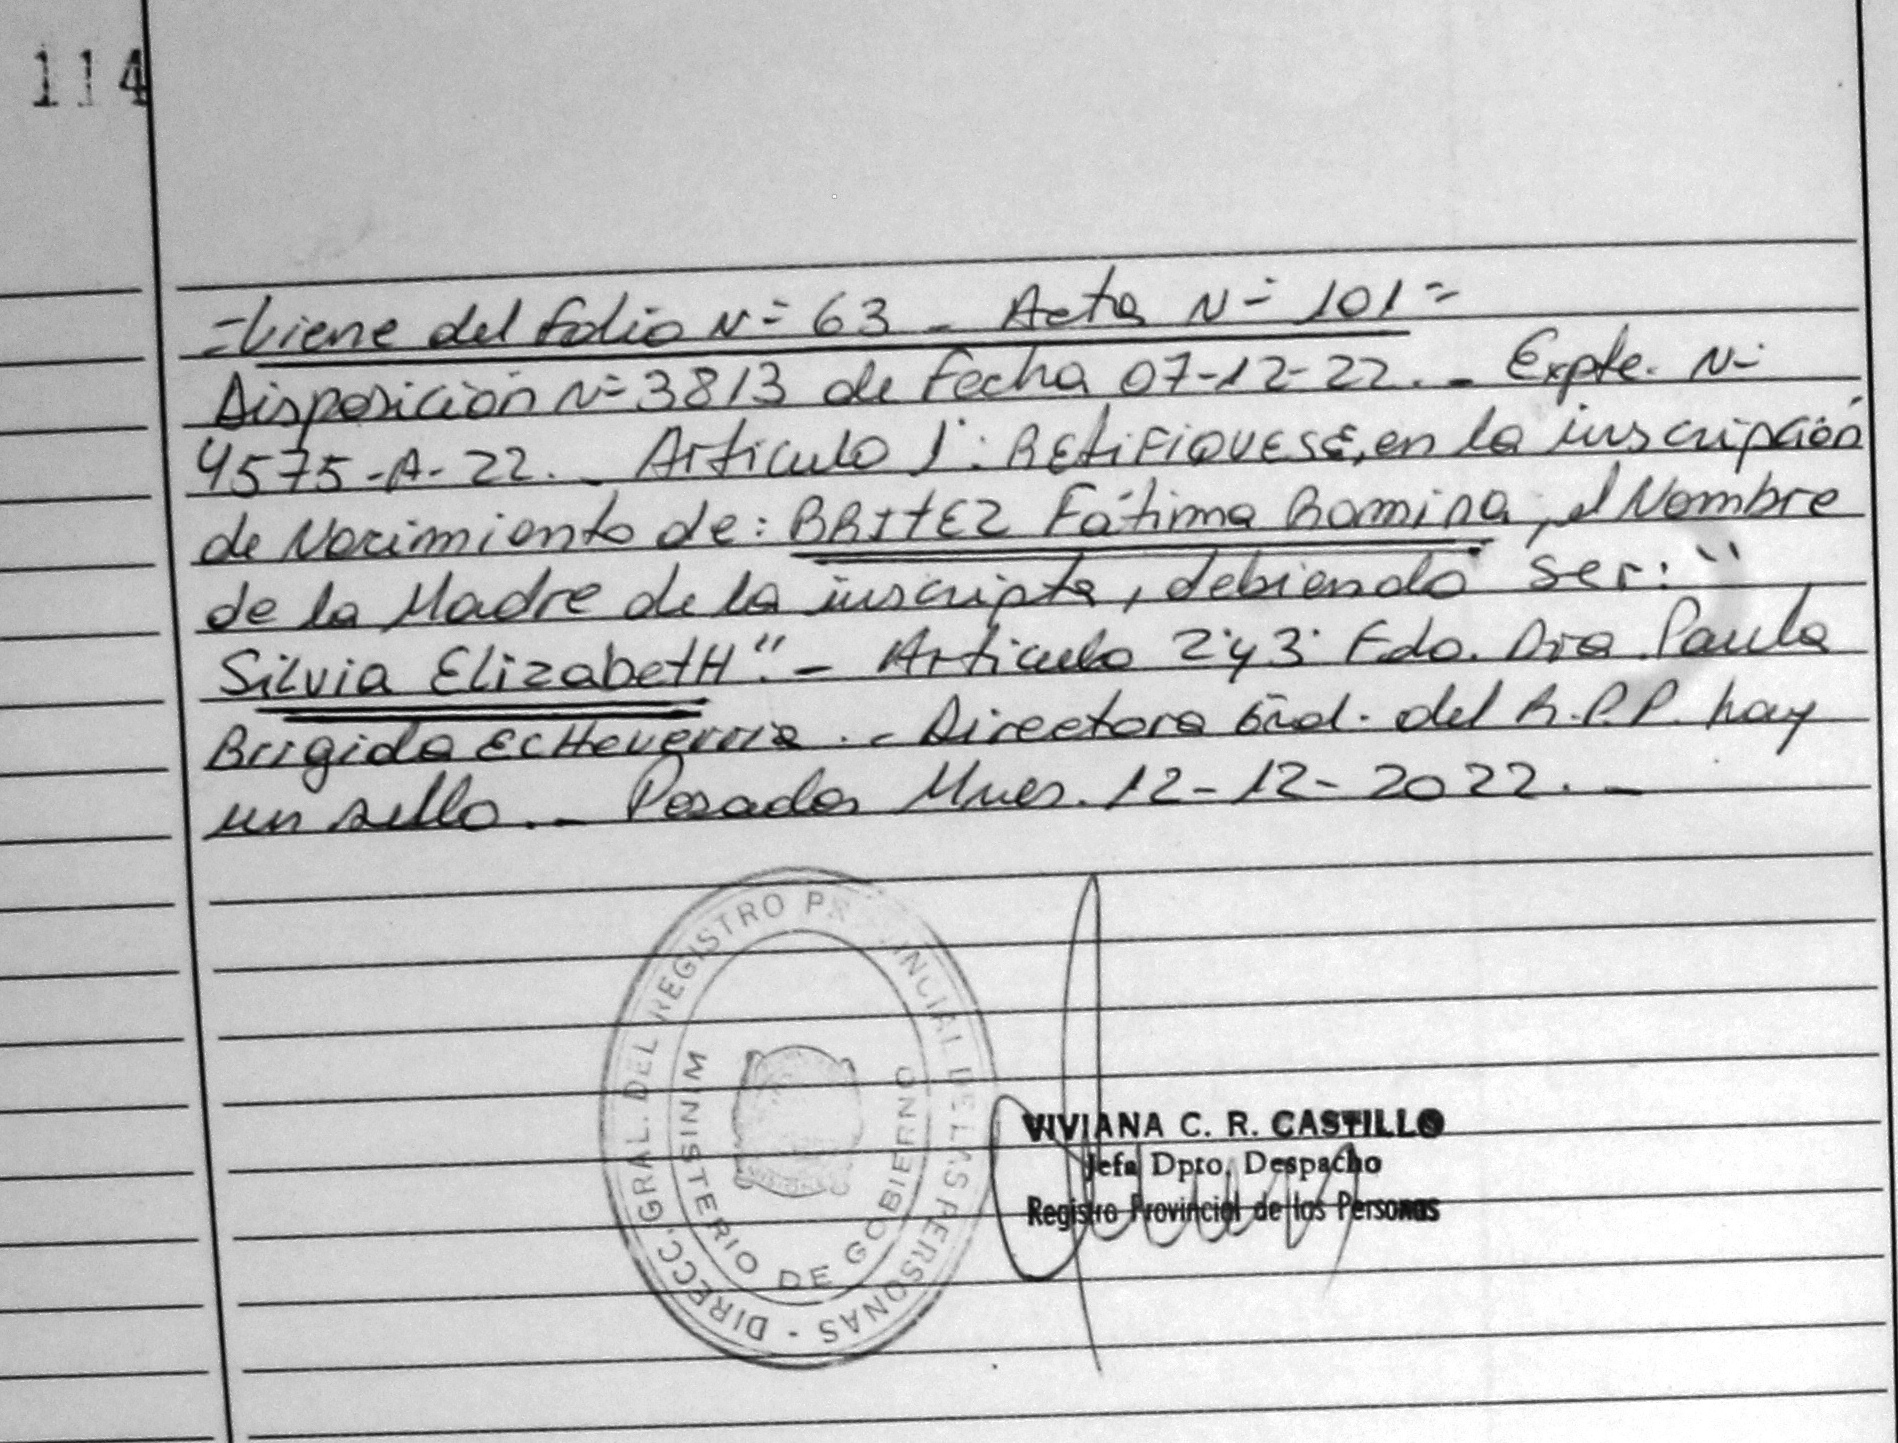 114
=Viene del folio N= 63 - Acta N= 101=
Disposición N= 3813 de Fecha 07-12-22.- Expte. N=
4575-A-22.- Artículo 1°: RETIFIQUESE, en la inscripción
de Nacimiento de: BRITEZ Fátima Romina, el Nombre
de la Madre de la inscripta, debiendo ser: "
Silvia ElizabetH".- Artículo 2°y3° Fdo. Dra Paula
Brigida EcHeverria.- Directora Gral. del R.P.P. hay
un sello.- Posadas Mnes. 12-12-2022.-
DIRECC. GRAL. DEL REGISTRO PROVINCIAL DE LAS PERSONAS -
MINISTERIO DE GOBIERNO
VIVIANA C. R. CASTILLO
Jefa Dpto. Despacho
Registro Provincial de las Personas